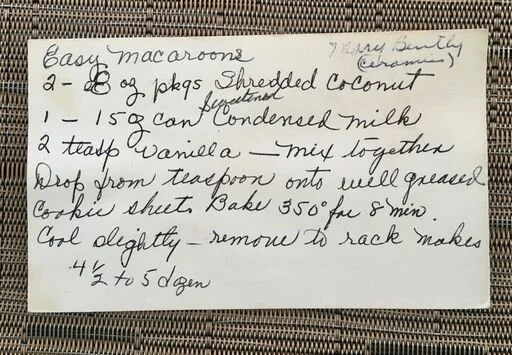 Easy Macaroons
Mary Bently
(Ceramics)
2 - 8 oz pkgs Shredded Coconut
Sweetened
1 - 15 oz can Condensed Milk
2 teasp Vanilla - Mix together
Drop from teaspoon onto well greased
Cookie sheet. Bake 350° for 8 min.
Cool slightly - remove to rack makes
4 1/2 to 5 dozen